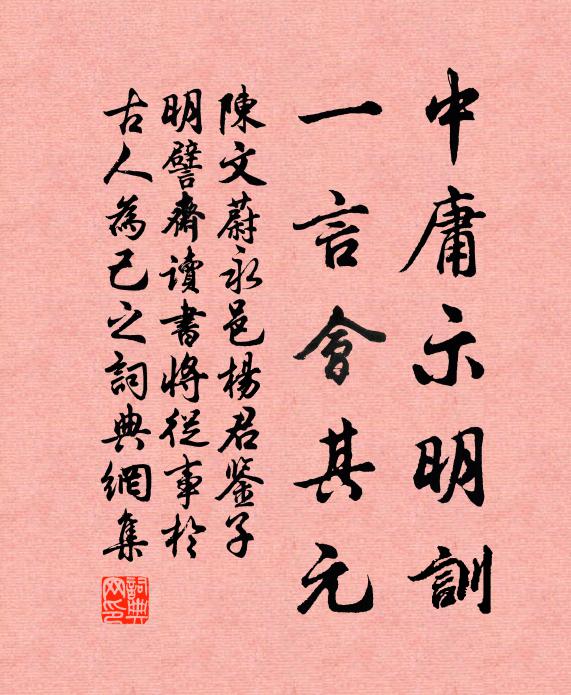 中庸示明訓
一言會其元
陳文蔚永邑楊君鉴子
明譬齋讀書將從事於
古人為己之詞典網集
詞典
网印